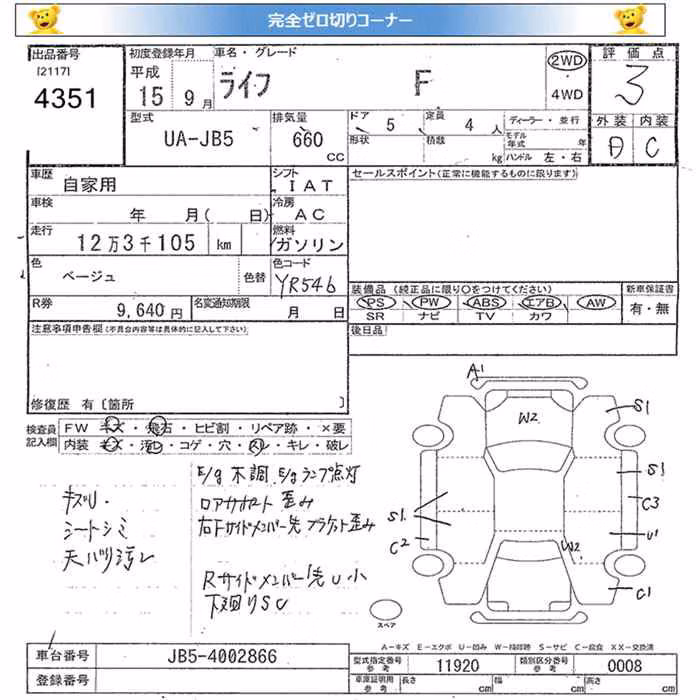 完全ゼロ切りコーナー
出品番号
[2117]
4351
初度登録年月
平成
15年 9月
車名・グレード
ライフ F
2WD
・
4WD
評価点
3
外装 内装
A C
型式
UA-JB5
排気量
660
CC
ドア 5
形状
定員 4 人
積載 kg
ディーラー・並行
モデル年式 年
ハンドル 左・右
車歴
自家用
シフト
IAT
車検
年 月( 日)
冷房
AC
走行
12万3千105 km
燃料
ガソリン
色
ベージュ
色替
色コード
YR546
R券
9,640円
名変通知期限
月 日
セールスポイント(正常に機能するものに限ります)
装備品 (純正品に限り〇をつけてください)
PS PW ABS エアB AW
SR ナビ TV カワ
新車保証書
有・無
後日品
注意事項申告欄(不具合内容等は具体的に記入して下さい)
修復歴 有〔箇所 〕
検査員記入欄
FW キズ・飛石・ヒビ割・リペア跡・×要
内装 キズ・汚レ・コゲ・穴・スレ・キレ・破レ
キズリ・
シートシミ
天バリ汚レ
E/g 不調 E/g ランプ点灯
ロアサポート 歪み
右下サイドメンバー先 ブラケット歪み
Rサイドメンバー先 U 小
下廻りSC
A1
W2
S1
S1
C3
U1
S1
C2
W2
C1
スペア
A－キズ E－エクボ U－凹み W－補修跡 S－サビ C－腐食 XX－交換済
車台番号
JB5-4002866
登録番号
型式指定番号
参考
11920
類別区分番号
参考
0008
車庫証明用
参考
長さ cm
幅 cm
高さ cm